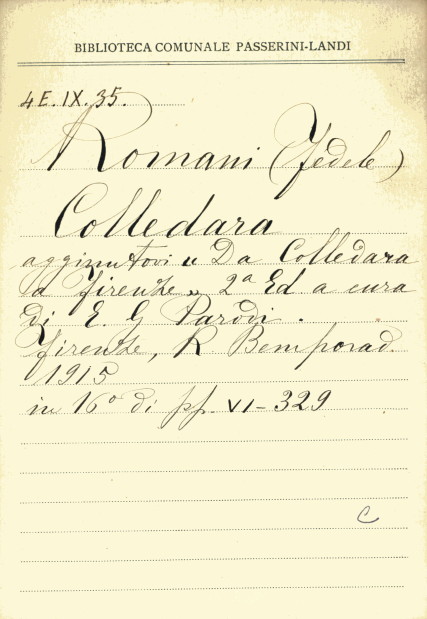 BIBLIOTECA COMUNALE PASSERINI-LANDI
4E.IX.35.
Romani (Fedele)
Colledara
aggiuntovi « Da Colledara
a Firenze » 2ª Ed a cura
di E. G Parodi.
Firenze, R. Bemporad.
1915
in 16° di pp. VI-329
C